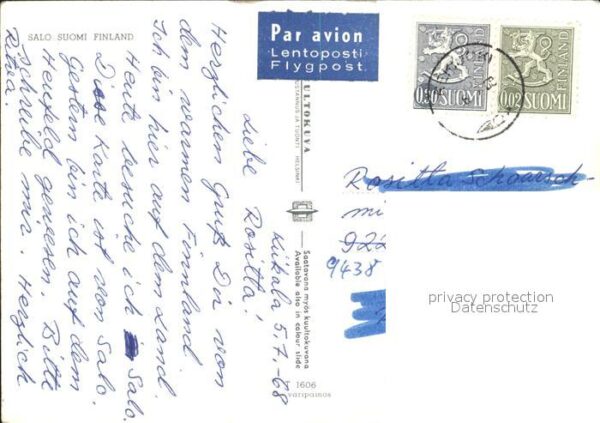 SALO SUOMI FINLAND
Kiikala 5.7.-68
Liebe Rositta!
Herzlichen Gruß Dir von
dem warmen Finnland.
Ich bin hier auf dem Land.
Heute besuche ich Salo.
Diese Karte ist von Salo.
Gestern bin ich auf dem
Heufeld gewesen. Bitte
schreibe mir. Herzlich
Ritva.
KUULTOKUVA
KUSTANNUS JA TUONTI HELSINKI
Saatavana myös kuultokuvana
Available also in colour slide
1606
Väripainos
Par avion
Lentoposti
Flygpost
0,30 SUOMI
FINLAND
0,02 SUOMI
FINLAND
Rositta
9438
privacy protection
Datenschutz